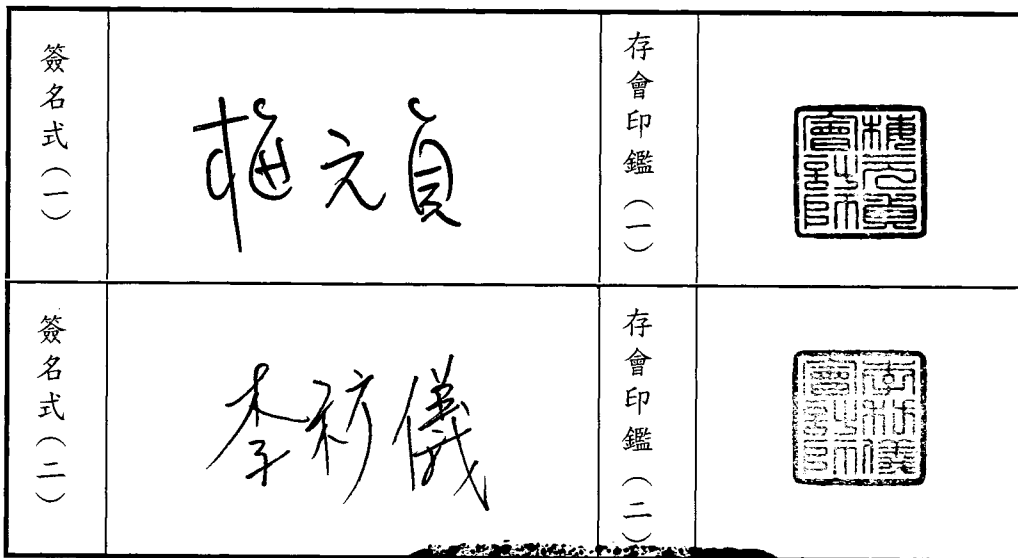 簽名式（一）
梅元貞
存會印鑑（一）
梅元貞
會計師
簽名式（二）
李 儀
存會印鑑（二）
李 儀
會計師